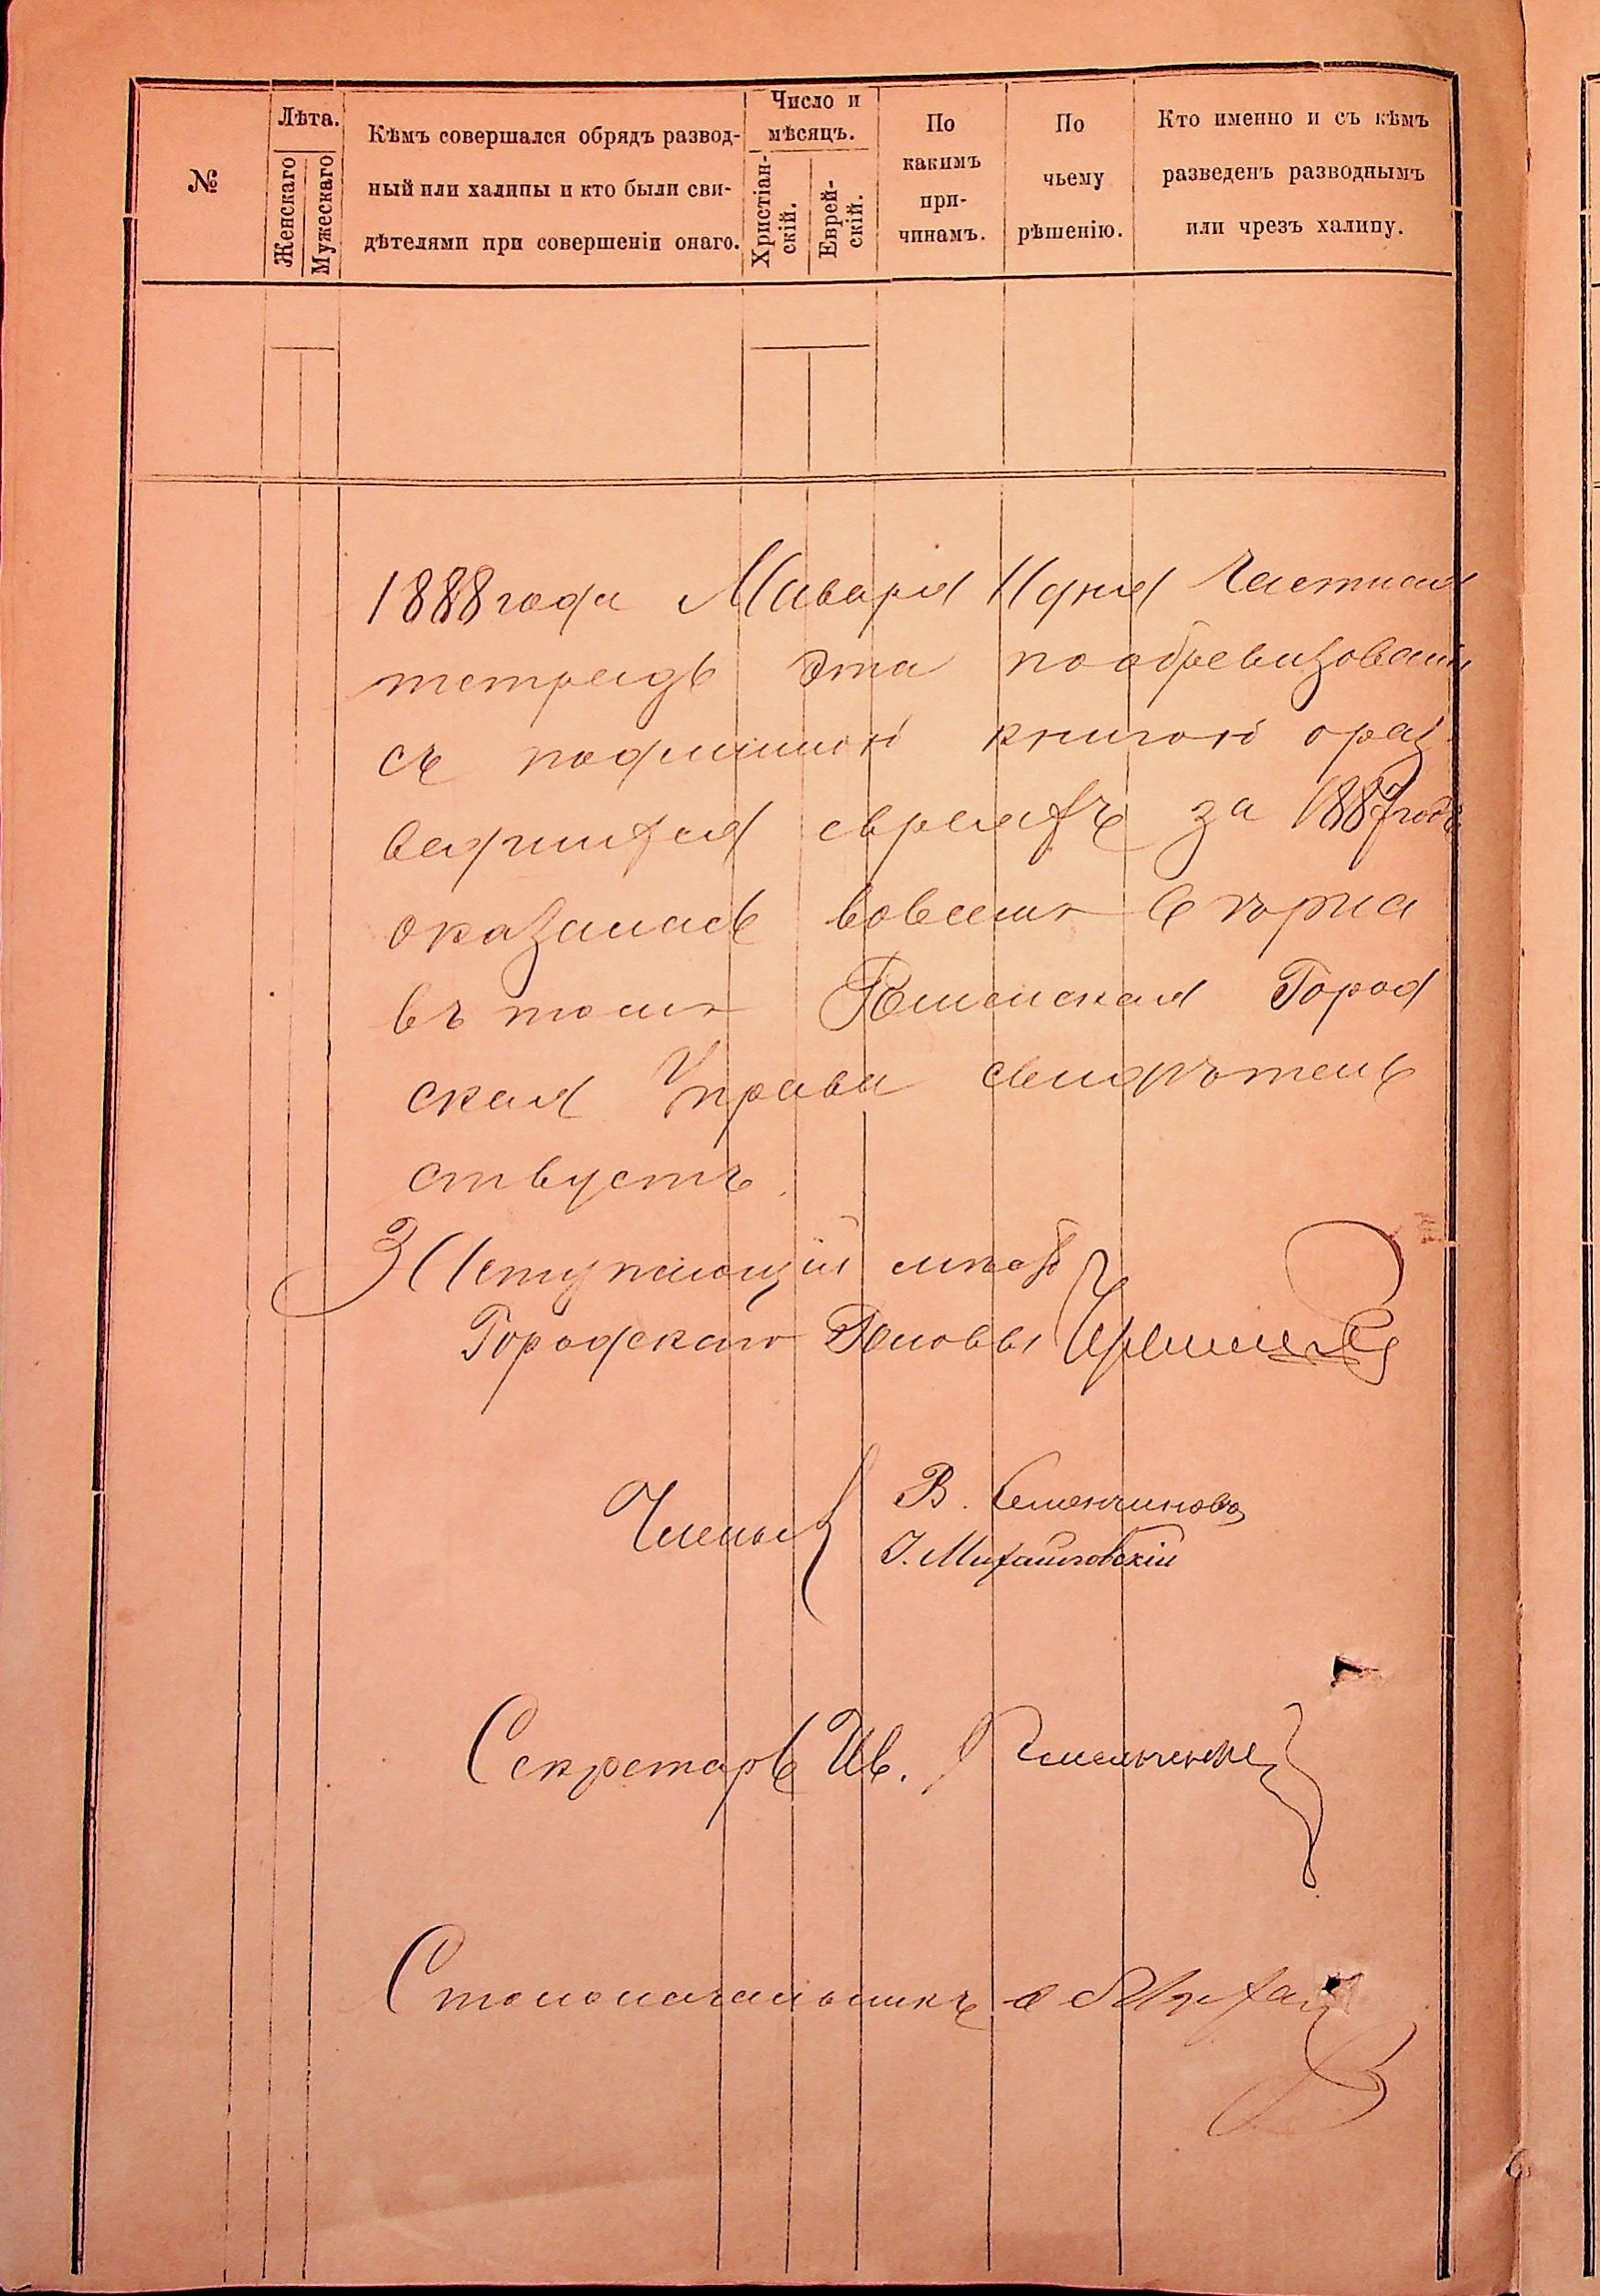 №
Лѣта.
Женскаго
Мужескаго
Кѣмъ совершался обрядъ развод-
ный или халицы и кто были сви-
дѣтелями при совершеніи онаго.
Число и
мѣсяцъ.
Христіан-
скій.
Еврей-
скій.
По
какимъ
при-
чинамъ.
По
чьему
рѣшенію.
Кто именно и съ кѣмъ
разведенъ разводнымъ
или чрезъ халицу.
1888 года Января 11 дня
тетрадь эта по обревизованіи
съ подлинною книгою о раз
ведшихся евреяхъ за 1887 годъ
оказалась во всемъ вѣрна
въ томъ Город
ская Управа свидѣтель
ствуетъ.
Заступающій мѣсто
Городскаго Головы
Члены
В.
І. Михайловскій
Секретарь Ив.
Столоначальникъ